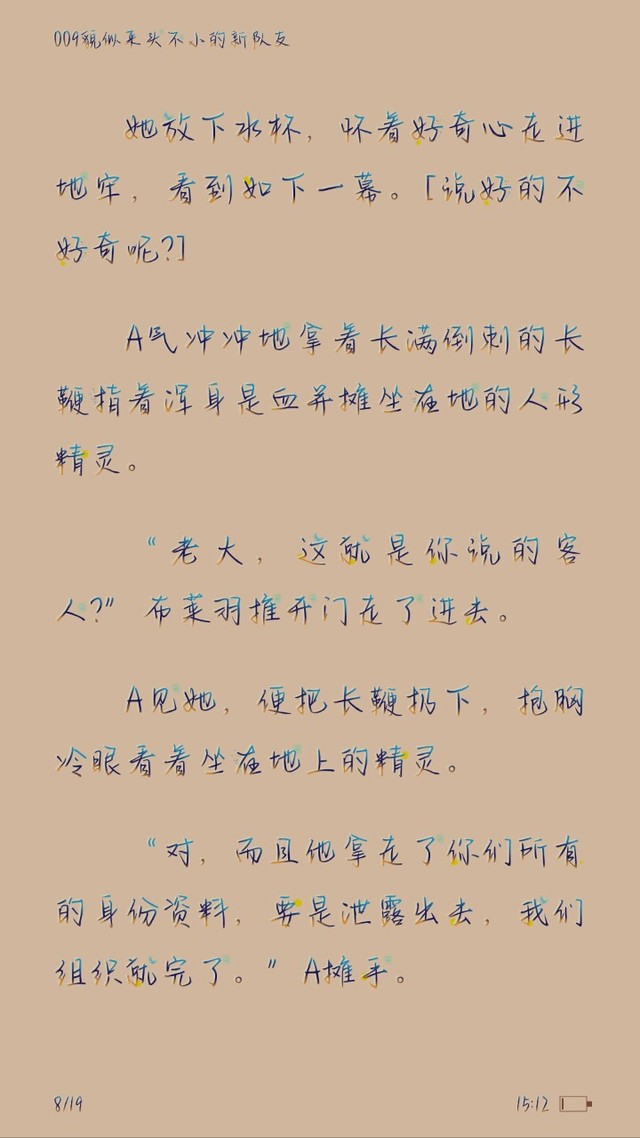 009貌似来头不小的新队友
她放下水杯，怀着好奇心走进
地牢，看到如下一幕。[说好的不
好奇呢?]
A气冲冲地拿着长满倒刺的长
鞭指着浑身是血并摊坐在地的人形
精灵。
“老大，这就是你说的客
人?”布莱羽推开门走了进去。
A见她，便把长鞭扔下，抱胸
冷眼看着坐在地上的精灵。
“对，而且他拿走了你们所有
的身份资料，要是泄露出去，我们
组织就完了。”A摊手。
8/19
15:12